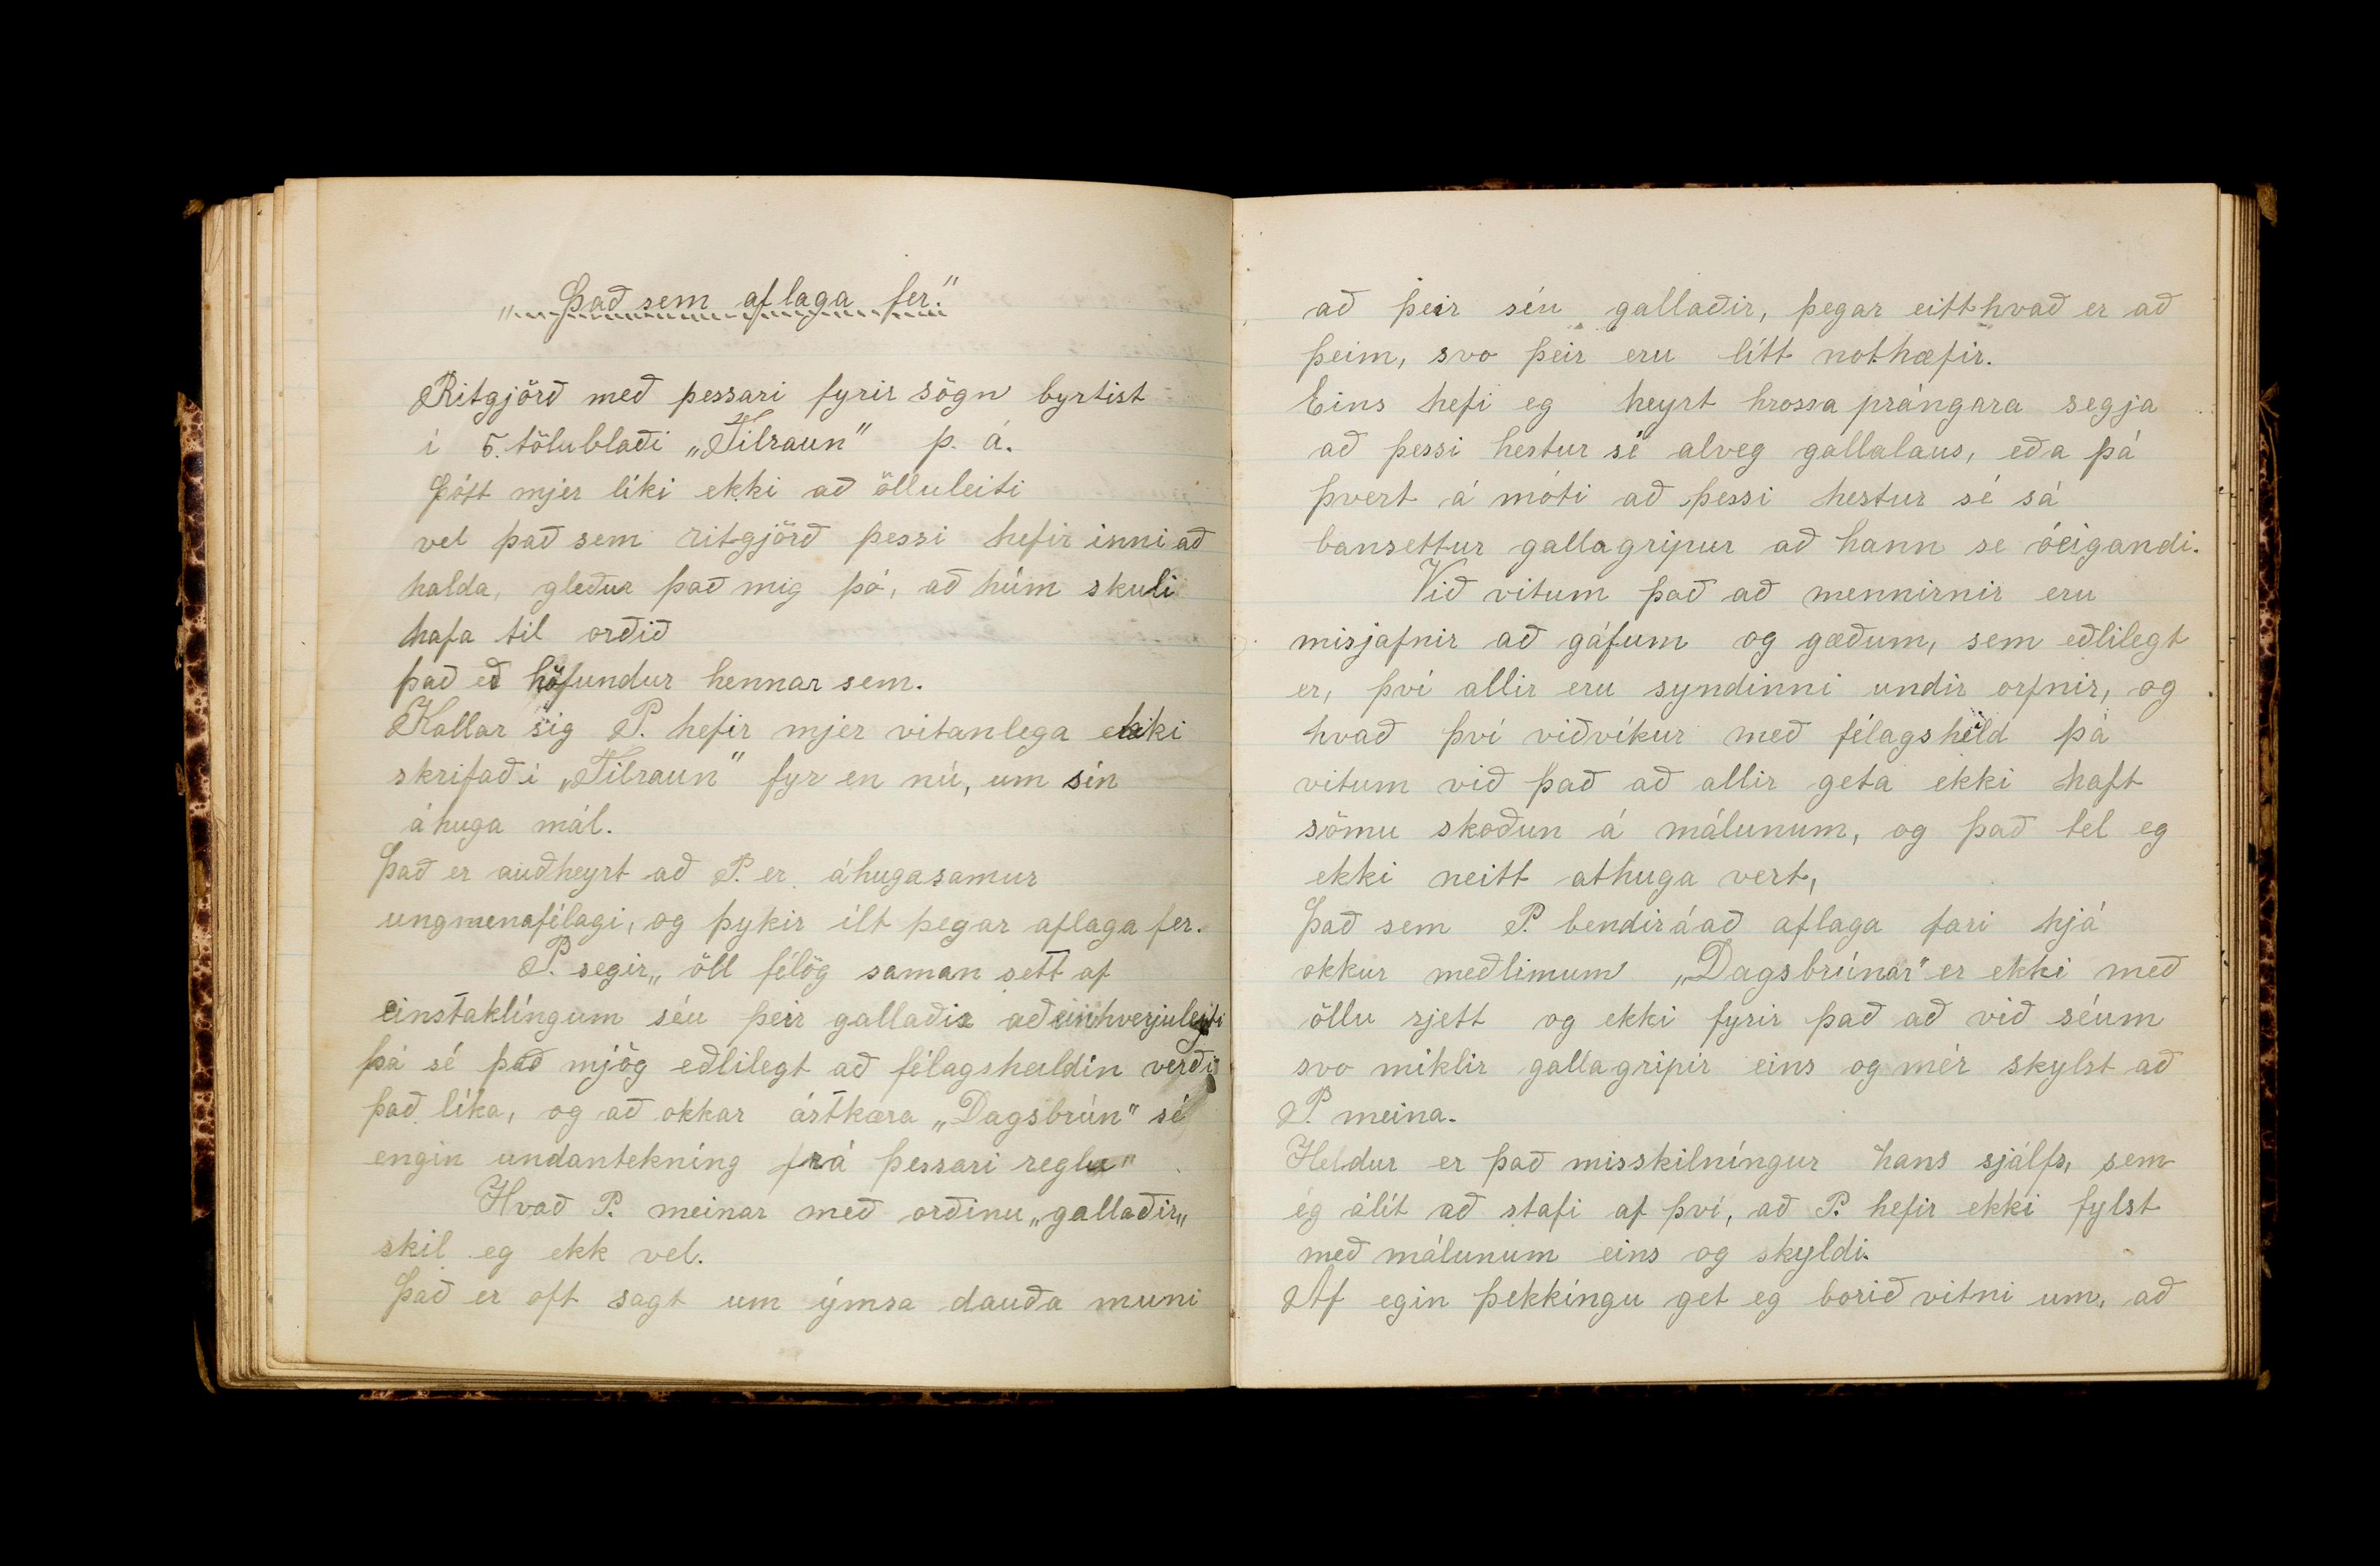 „Það sem aflaga fer."
Ritgjörð með þessari fyrir sögn byrtist
í 5. tölublaði „Tilraun" þ. á.
Þótt mjer líki ekki að ölluleiti
vel það sem ritgjörð þessi hefir inni að
halda, gleður það mig þó, að húm skuli
hafa til orðið
það eð höfundur hennar sem.
Kallar sig P. hefir mjer vitanlega ekki
skrifað í „Tilraun" fyr en nú, um sín
áhuga mál.
Það er auðheyrt að P. er áhugasamur
ungmenafélagi, og þykir ílt þegar aflaga fer.
P. segir „ öll félög saman sett af
einstaklíngum séu þeir gallaðir að einhverjuleyti
þá sé það mjög eðlilegt að félagsheildin verði
það líka, og að okkar ástkæra „Dagsbrún" sé
engin undantekníng frá þessari reglu"
Hvað P. meinar með orðinu „gallaðir„
skil eg ekk vel.
Það er oft sagt um ýmsa dauða muni
að þeir séu gallaðir, þegar eitthvað er að
þeim, svo þeir eru lítt nothæfir.
Eins hefi eg heyrt hrossa prángara segja
að þessi hestur sé alveg gallalaus, eða þá
þvert á móti að þessi hestur sé sá
bansettur gallagripur að hann se óeigandi.
Við vitum það að mennirnir eru
misjafnir að gáfum og gæðum, sem eðlilegt
er, því allir eru syndinni undir orfnir, og
hvað því viðvíkur með félagsheild þá
vitum við það að allir geta ekki haft
sömu skoðun á málunum, og það tel eg
ekki neitt athuga vert,
Það sem P. bendir á að aflaga fari hjá
okkur meðlimum „Dagsbrúnar" er ekki með
öllu rjett og ekki fyrir það að við séum
svo miklir gallagripir eins og mér skylst að
P. meina.
Heldur er það misskilníngur hans sjálfs, sem
ég álít að stafi af því, að P. hefir ekki fylst
með málunum eins og skyldi.
Af egin þekkíngu get eg borið vitni um, að